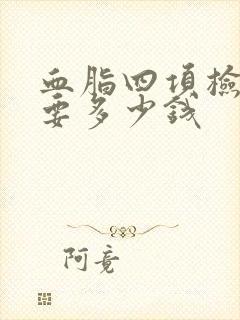 血脂四項檢
要多少錢
阿竟